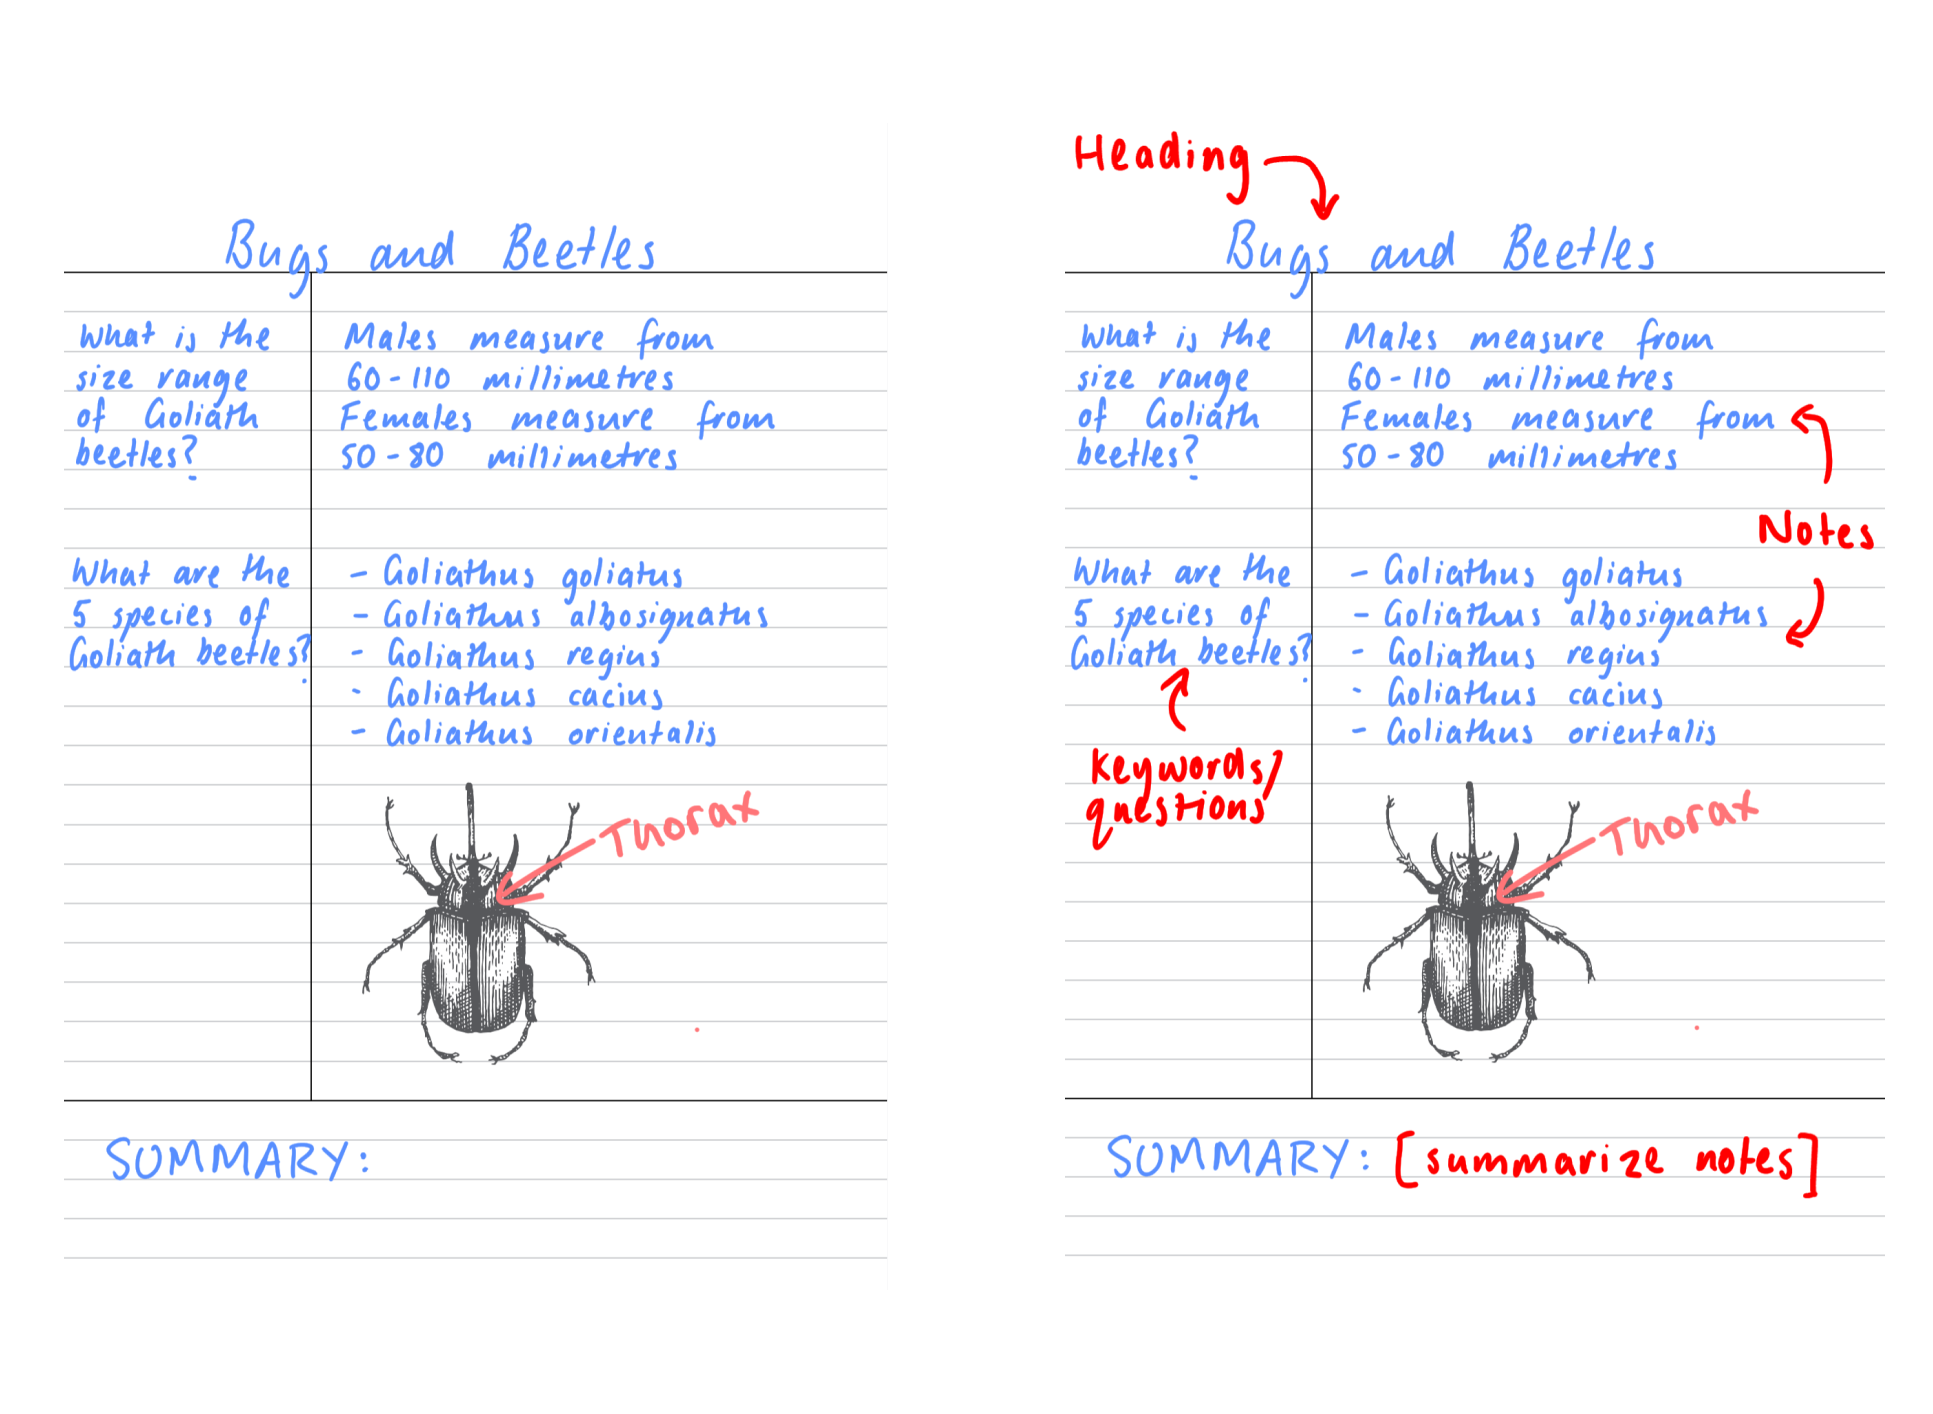 Bugs and Beetles
What is the
size range
of Goliath
beetles?
Males measure from
60-110 millimetres
Females measure from
50-80 millimetres
What are the
5 species of
Goliath beetles?
- Goliathus goliatus
- Goliathus albosignatus
- Goliathus regius
- Goliathus cacius
- Goliathus orientalis
Thorax
SUMMARY:
Heading
Bugs and Beetles
What is the
size range
of Goliath
beetles?
Males measure from
60-110 millimetres
Females measure from
50-80 millimetres
Notes
What are the
5 species of
Goliath beetles?
- Goliathus goliatus
- Goliathus albosignatus
- Goliathus regius
- Goliathus cacius
- Goliathus orientalis
Keywords/
questions
Thorax
SUMMARY: [summarize notes]